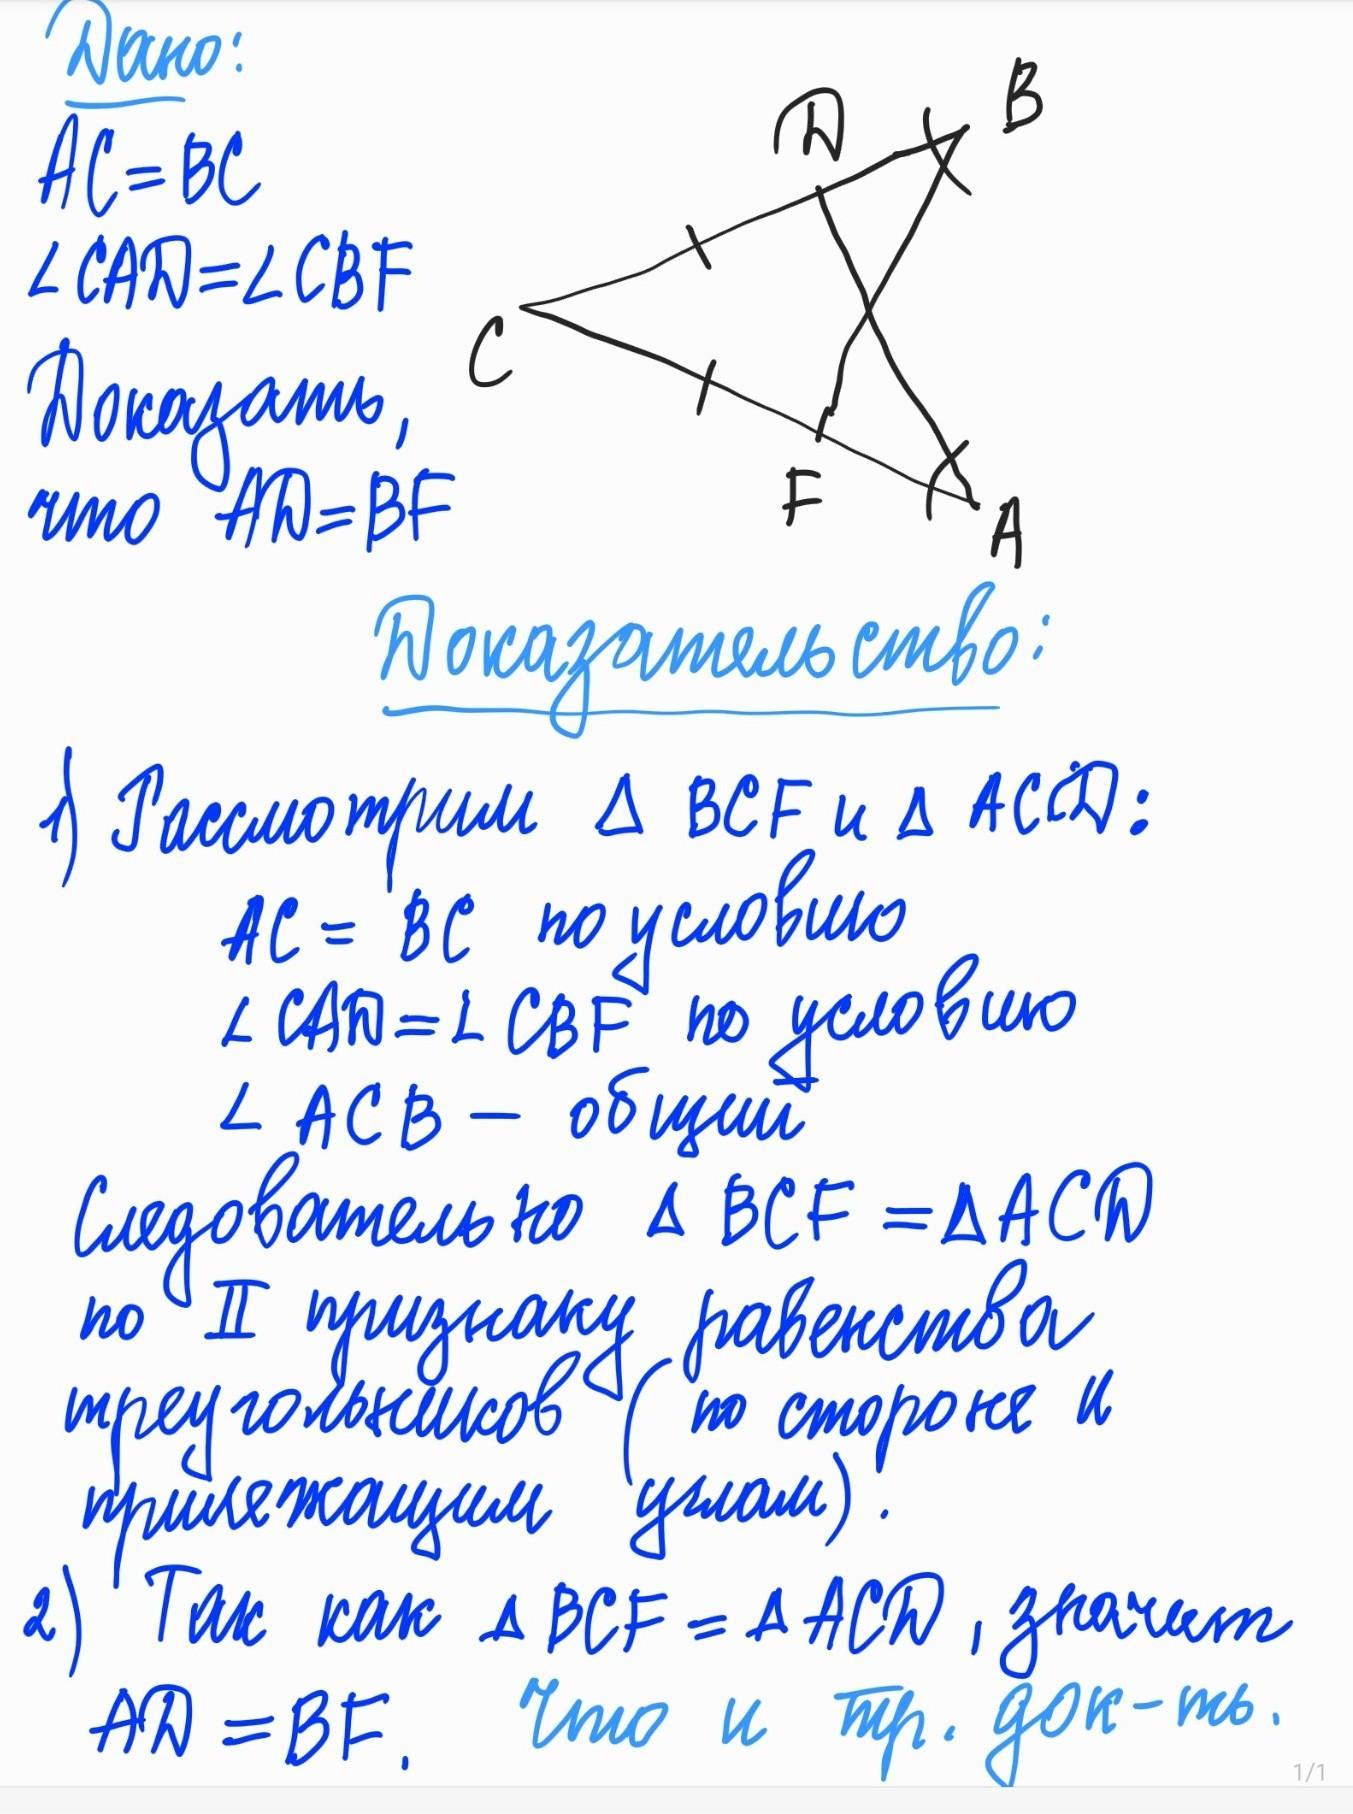 Дано:
AC=BC
∠CAD=∠CBF
Доказать,
что AD=BF
D
B
C
F
A
Доказательство:
1) Рассмотрим Δ BCF и Δ ACD:
AC = BC по условию
∠CAD=∠CBF по условию
∠ ACB – общий
Следовательно Δ BCF = Δ ACD
по II признаку равенства
треугольников (по стороне и
прилежащим углам).
2) Так как Δ BCF = Δ ACD, значит
AD = BF. Что и тр. док-ть.
1/1